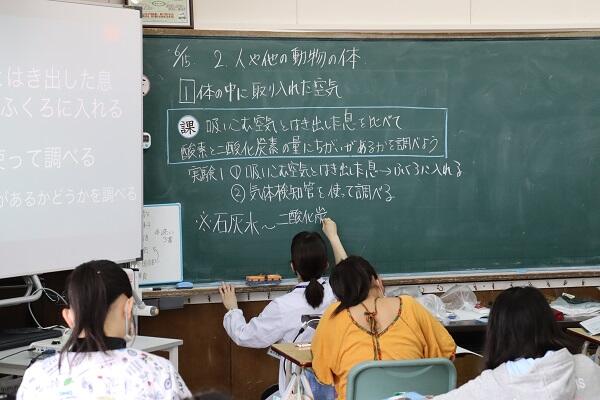 6/15 2. 人や他の動物の体
1 体の中に取り入れた空気
課 吸いこむ空気とはき出した息を比べて
酸素と二酸化炭素の量にちがいがあるかを調べよう
実験1 ① 吸いこむ空気とはき出した息→ふくろに入れる
② 気体検知管を使って調べる
※石灰水〜二酸化炭
とはき出した息
ふくろに入れる
使って調べる
があるかどうかを調べる